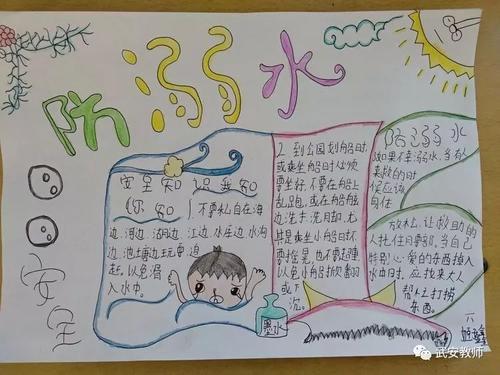 防溺水
安全
安全知识我知
你知
1.不要私自在海
边、河边、湖边、江边、水库边、水沟
边、池塘边玩耍、追
赶,以免滑
入水中。
2.到公园划船时,
或乘坐船时必须
要坐好,不要在船上
乱跑,或在船舷
边洗手、洗脚,尤
其是乘坐小船时不
要摇晃,也不要超重,
以免小船掀翻
或下
沉。
防溺水
如果不幸溺水,当有
人来救助的时
候应该
身体
放松,让救助的
人托住腰部,当自己
特别心爱的东西掉入
水中时,应找来大人
帮忙打捞
东西。
墨水
六
武安教师